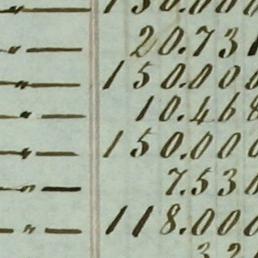 — " — 150.000
— " — 20.731
— " — 150.000
— " — 10.468
— " — 150.000
— " — 7.530
— " — 118.000